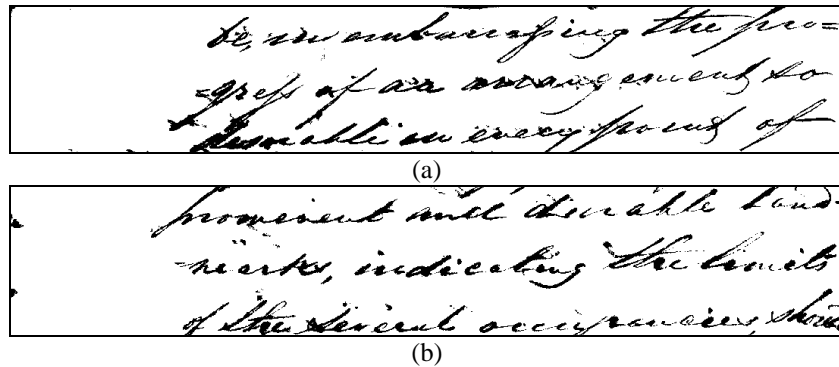 be, in embarrassing the pro=
=gress of an arrangement so
desirable in every point of
(a)
prominent and durable land-
-marks, indicating the limits
of the several occupancies, should
(b)